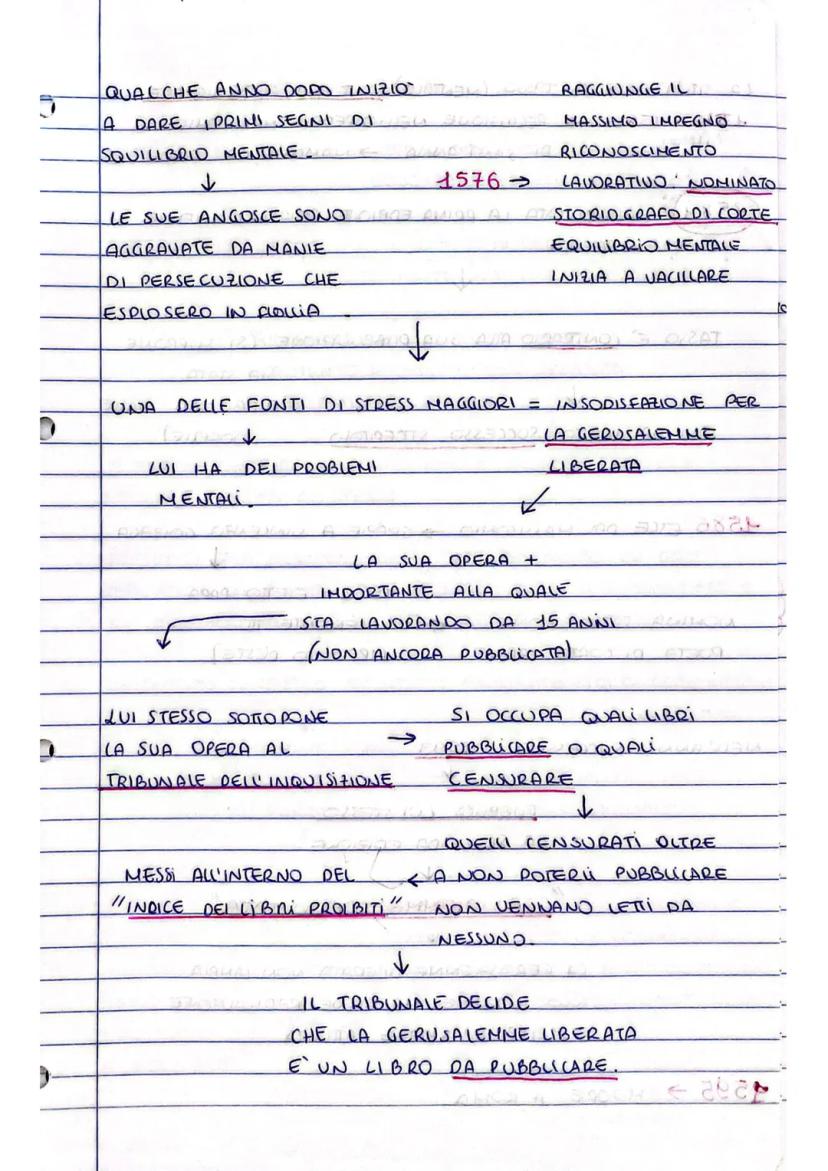 QUALCHE ANNO DOPO INIZIO'
A DARE I PRIMI SEGNI DI
SQUILIBRIO MENTALE.
↓
LE SUE ANGOSCE SONO
AGGRAVATE DA MANIE
DI PERSECUZIONE CHE
ESPLOSERO IN FOLLIA.
1576 →
RAGGIUNGE IL
MASSIMO IMPEGNO.
RICONOSCIMENTO
LAVORATIVO: NOMINATO
STORIOGRAFO DI CORTE
EQUILIBRIO MENTALE
INIZIA A VACILLARE
↓
UNA DELLE FONTI DI STRESS MAGGIORI = INSODISFAZIONE PER
LA GERUSALEMME
LIBERATA
↓
LUI HA DEI PROBLEMI
MENTALI.
↙
LA SUA OPERA +
IMPORTANTE ALLA QUALE
STA LAVORANDO DA 15 ANNI
(NON ANCORA PUBBLICATA)
LUI STESSO SOTTOPONE
LA SUA OPERA AL
TRIBUNALE DELL'INQUISIZIONE
→ SI OCCUPA QUALI LIBRI
PUBBLICARE O QUALI
CENSURARE
↓
QUELLI CENSURATI OLTRE
A NON POTERLI PUBBLICARE
NON VENNANO LETTI DA
NESSUNO.
← MESSI ALL'INTERNO DEL
"INDICE DEI LIBRI PROIBITI"
↓
IL TRIBUNALE DECIDE
CHE LA GERUSALEMME LIBERATA
E' UN LIBRO DA PUBBLICARE.